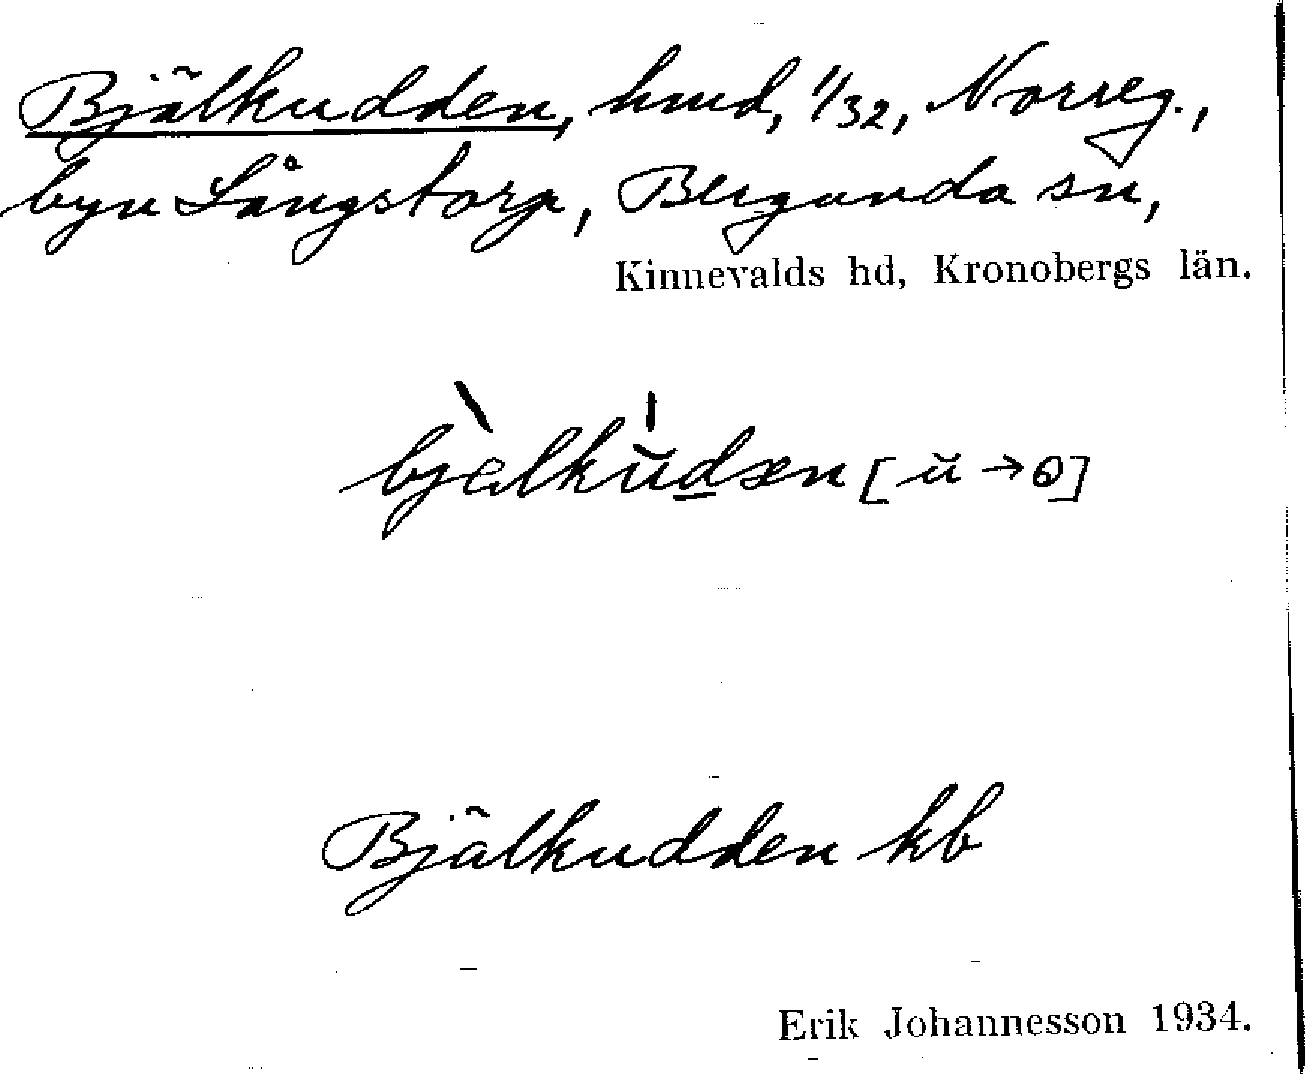 Bjälkudden, hmd, 1/32, Norreg.,
byn Långstorp, Bergunda sn,
Kinnevalds hd, Kronobergs län.
bjælkŭdæn [ŭ → ɵ]
Bjälkudden kb
Erik Johannesson 1934.